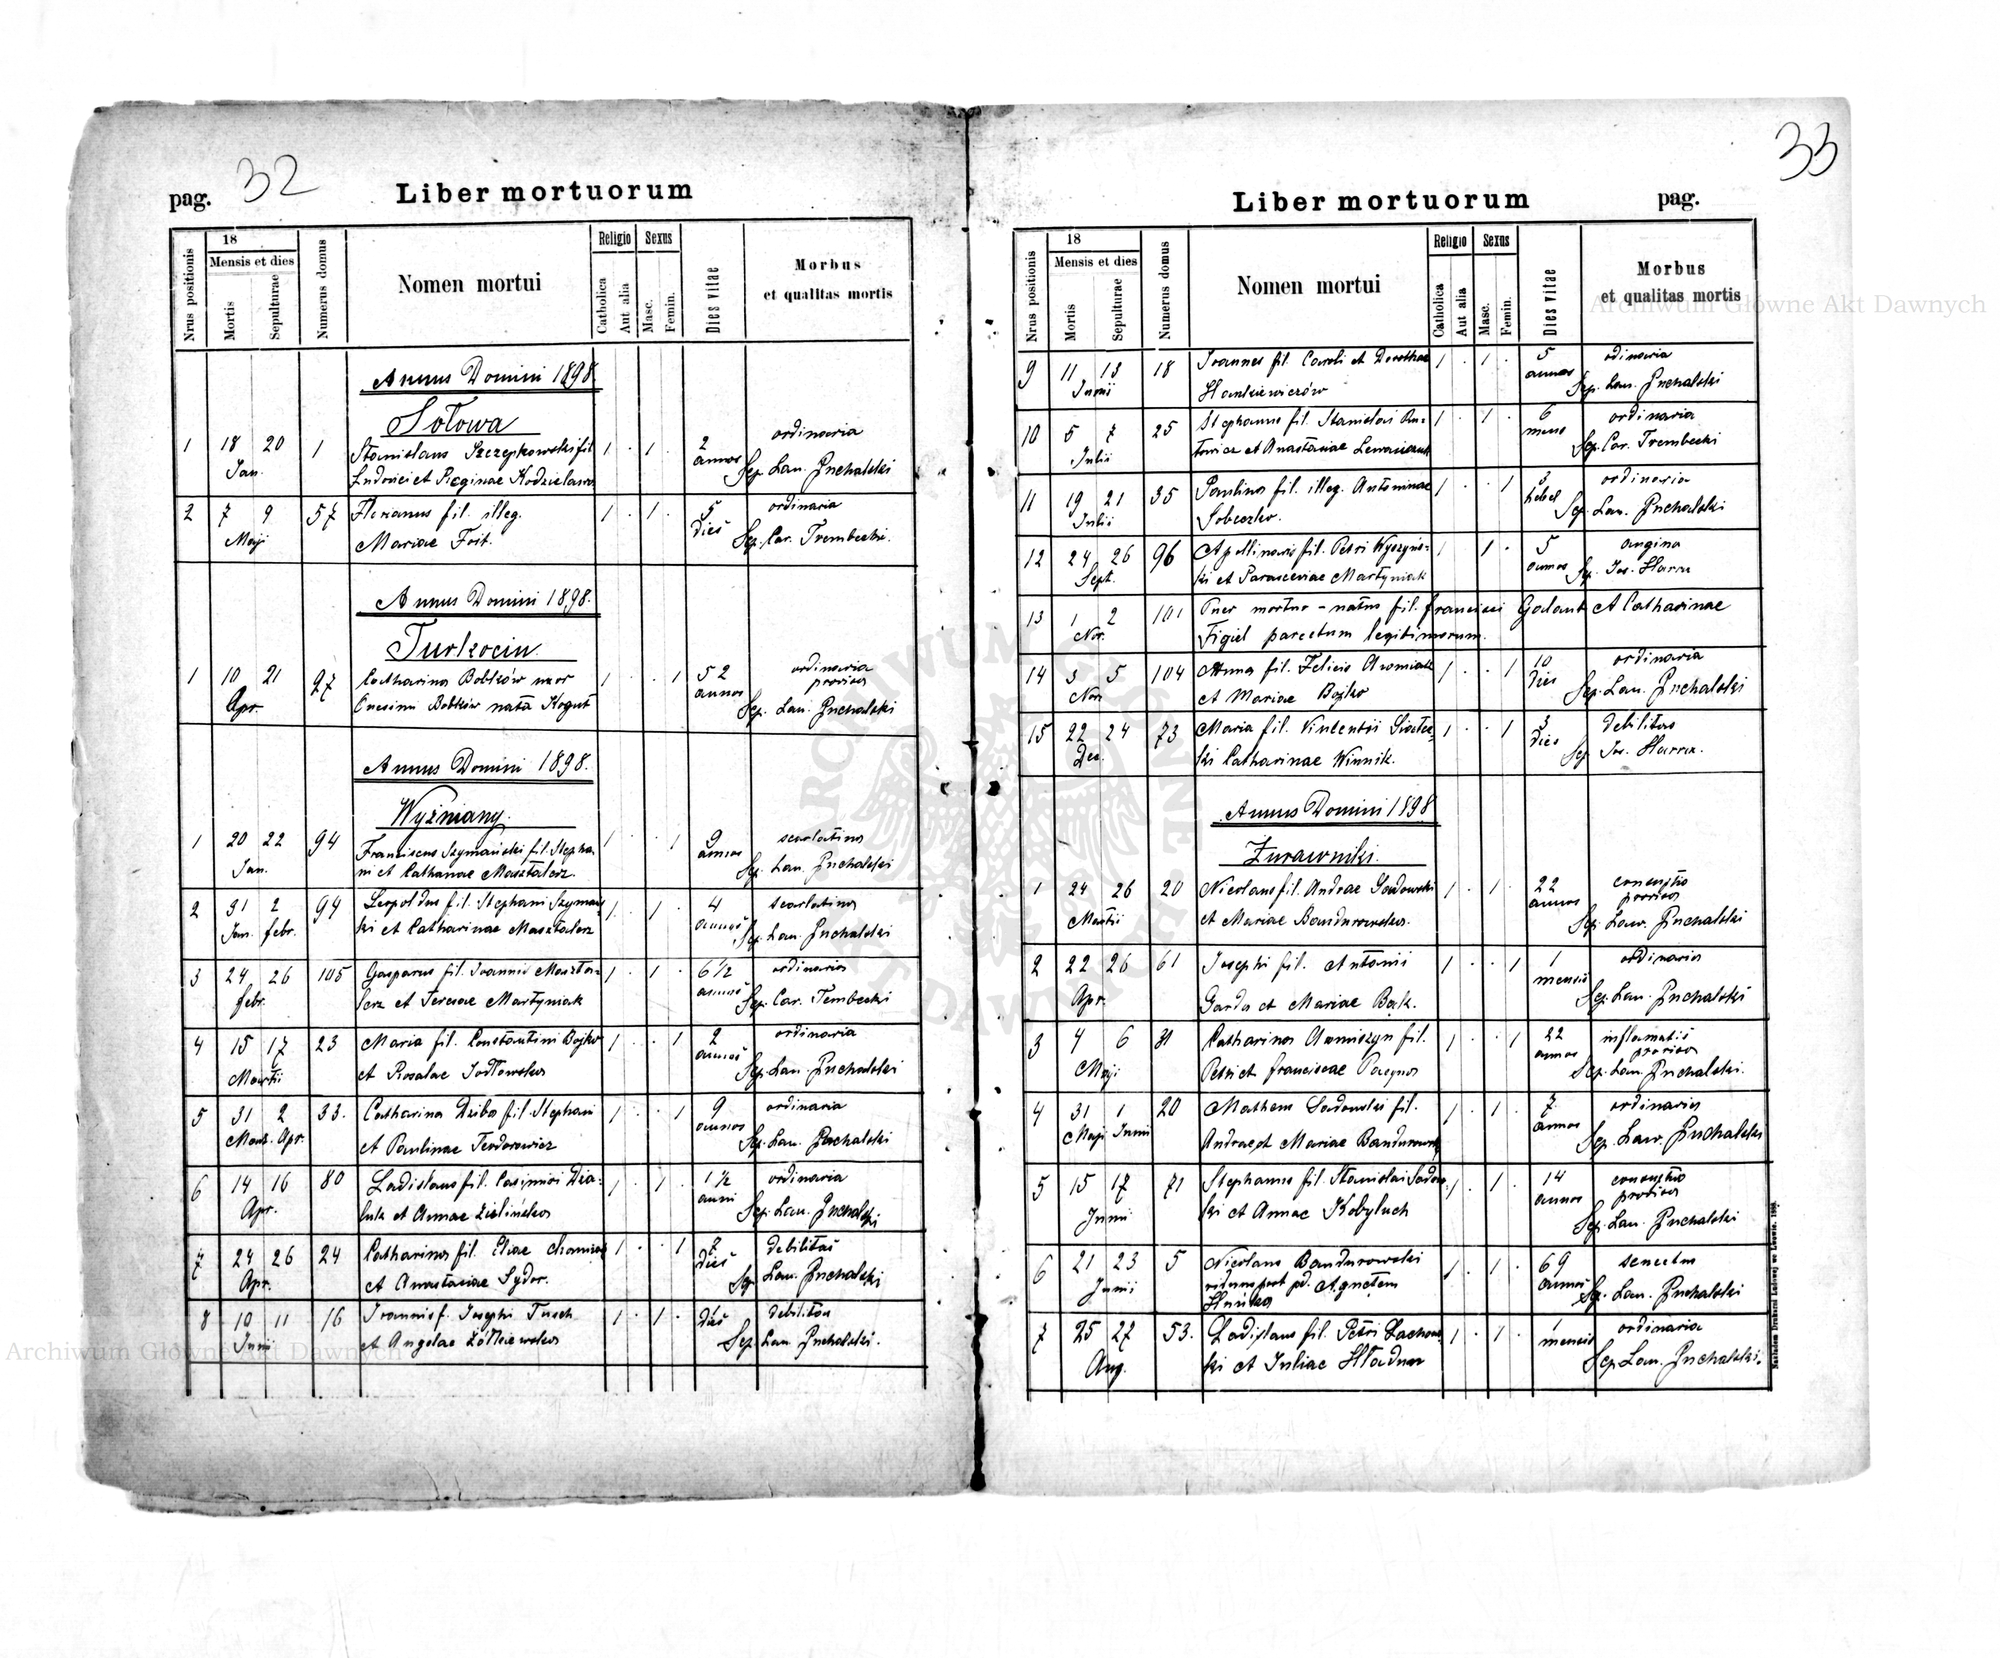 pag. 32
Liber mortuorum
Nrus positionis
18
Mensis et dies
Mortis
Sepulturae
Numerus domus
Nomen mortui
Religio
Catholica
Aut alia
Sexus
Masc.
Femin.
Dies vitae
Morbus
et qualitas mortis
Annus Domini 1898.
Sołowa
1 18 20 1 Stanislaus Szczepkowski fil. 1 . 1 . 2 ordinaria
Jan. Ludovici et Reginae annos Sep. Lau. Puchalski
2 7 9 57 Florianus fil. illeg. 1 . 1 . 5 ordinaria
Maji Mariae Foit. dies Sep. Car. Trembecki.
Annus Domini 1898.
Turkocin.
1 10 21 97 Catharina Bobków uxor 1 . . 1 52 ordinaria
Apr. Onesimi Bobków natā Kogut annos provisa
Sep. Lau. Puchalski
Annus Domini 1898.
Wyżniany.
1 20 22 94 Franciscus Szymański fil. Stepha- 1 . . 1 9 scarlatina
Jan. ni et Catharinae Masztalerz. annos Sep. Lau. Puchalski
2 31 2 94 Leopoldus fil. Stephani Szymań- 1 . 1 . 4 scarlatina
Jan. febr. ski et Catharinae Masztalerz annos Sep. Lau. Puchalski
3 24 26 105 Gasparus fil. Joannis Maszta- 1 . 1 . 6 1/2 ordinaria
febr. lerz et Teresae Martyniak annos Sep. Car. Tembecki
4 15 17 23 Maria fil. Constantini Bojko 1 . . 1 2 ordinaria
Martii et Rosalae Jodłowska annos Sep. Lau. Puchalski
5 31 2 33. Catharina Dziba fil. Stephani 1 . . 1 9 ordinaria
Mart. Apr. et Paulinae Teodorowicz annos Sep. Lau. Puchalski
6 14 16 80 Ladislaus fil. Casimiri 1 . 1 . 1 1/2 ordinaria
Apr. et Annae Zielińska anni Sep. Lau. Puchalski
7 24 26 24 Catharina fil. Eliae 1 . . 1 debilitas
Apr. et Anastasiae Sydor. dies Sep. Lau. Puchalski
8 10 11 16 Joannis f. Josephi 1 . 1 . 1 debilitas
Junii et Angelae Żółkiewska dies Sep. Lau. Puchalski.
33
Liber mortuorum
pag.
Nrus positionis
18
Mensis et dies
Mortis
Sepulturae
Numerus domus
Nomen mortui
Religio
Catholica
Aut alia
Sexus
Masc.
Femin.
Dies vitae
Morbus
et qualitas mortis
9 11 13 18 Joannes fil. Caroli et Dorothae 1 . 1 . 5 odinaria
Junii annos Sep. Lau. Puchalski
10 5 7 25 Stephanus fil. Stanislai 1 . 1 . 6 ordinaria
Julii et Anastasiae mens Sep. Car. Trembecki
11 19 21 35 Paulina fil. illeg. Antoninae 1 . . 1 3 ordinaria
Julii Sobeczko. Sep. Lau. Puchalski
12 24 26 96 Apollinaris fil. Petri Wyszyńs- 1 1 . 5 angina
Sept. ki et Parasceviae Martyniak annos Sep. Jos. Harra
13 1 2 101 Puer mortuo-natus fil. francisci Galant et Catharinae
Nov. Figiel parentum legitimorum.
14 3 5 104 Anna fil. Felicis 1 . . 1 10 ordinaria
Nov. et Mariae Bojko dies Sep. Lau. Puchalski
15 22 24 73 Maria fil. Vincentii 1 . . 1 3 debilitas
Dec. ki Catharinae Winnik. dies Sep. Jos. Harra.
Annus Domini 1898
Żurawniki.
1 24 26 20 Nicolaus fil. Andrae Sadowski 1 . 1 . 22
Martii et Mariae Bandurowska. annos provisa
Sep. Law. Puchalski
2 22 26 61 Josephi fil. Antonii 1 . . 1 1 ordinaria
Apr. Garda et Mariae Bak. mensis Sep. Lau. Puchalski
3 4 6 31 Catharina fil. 1 . . 1 22 inflamatis
Maji Petri et franciscae annos provisa
Sep. Lau. Puchalski.
4 31 1 20 Matheus Sadowski fil. 1 . 1 . 7 ordinaria
Maji Junii Andrae et Mariae Bandurowsk annos Sep. Law. Puchalski
5 15 17 71 Stephanus fil. Stanislai Sadow- 1 . 1 . 14
Junii ki et Annae Kobyluch annos provisa
Sep. Lau. Puchalski
6 21 23 5 Nicolaus Bandurowski 1 . 1 . 69 senectus
Junii viduus post pd. Agnetem annos Sep. Lau. Puchalski
7 25 27 53. Ladislaus fil. Petri 1 . 1 . 1 ordinaria
Aug. ki et Juliae Hładun mensis Sep. Lau. Puchalski.
Nakładem Drukarni Ludowej we Lwowie.
Archiwum Główne Akt Dawnych
Archiwum Główne Akt Dawnych
ARCHIWUM GŁÓWNE AKT DAWNYCH